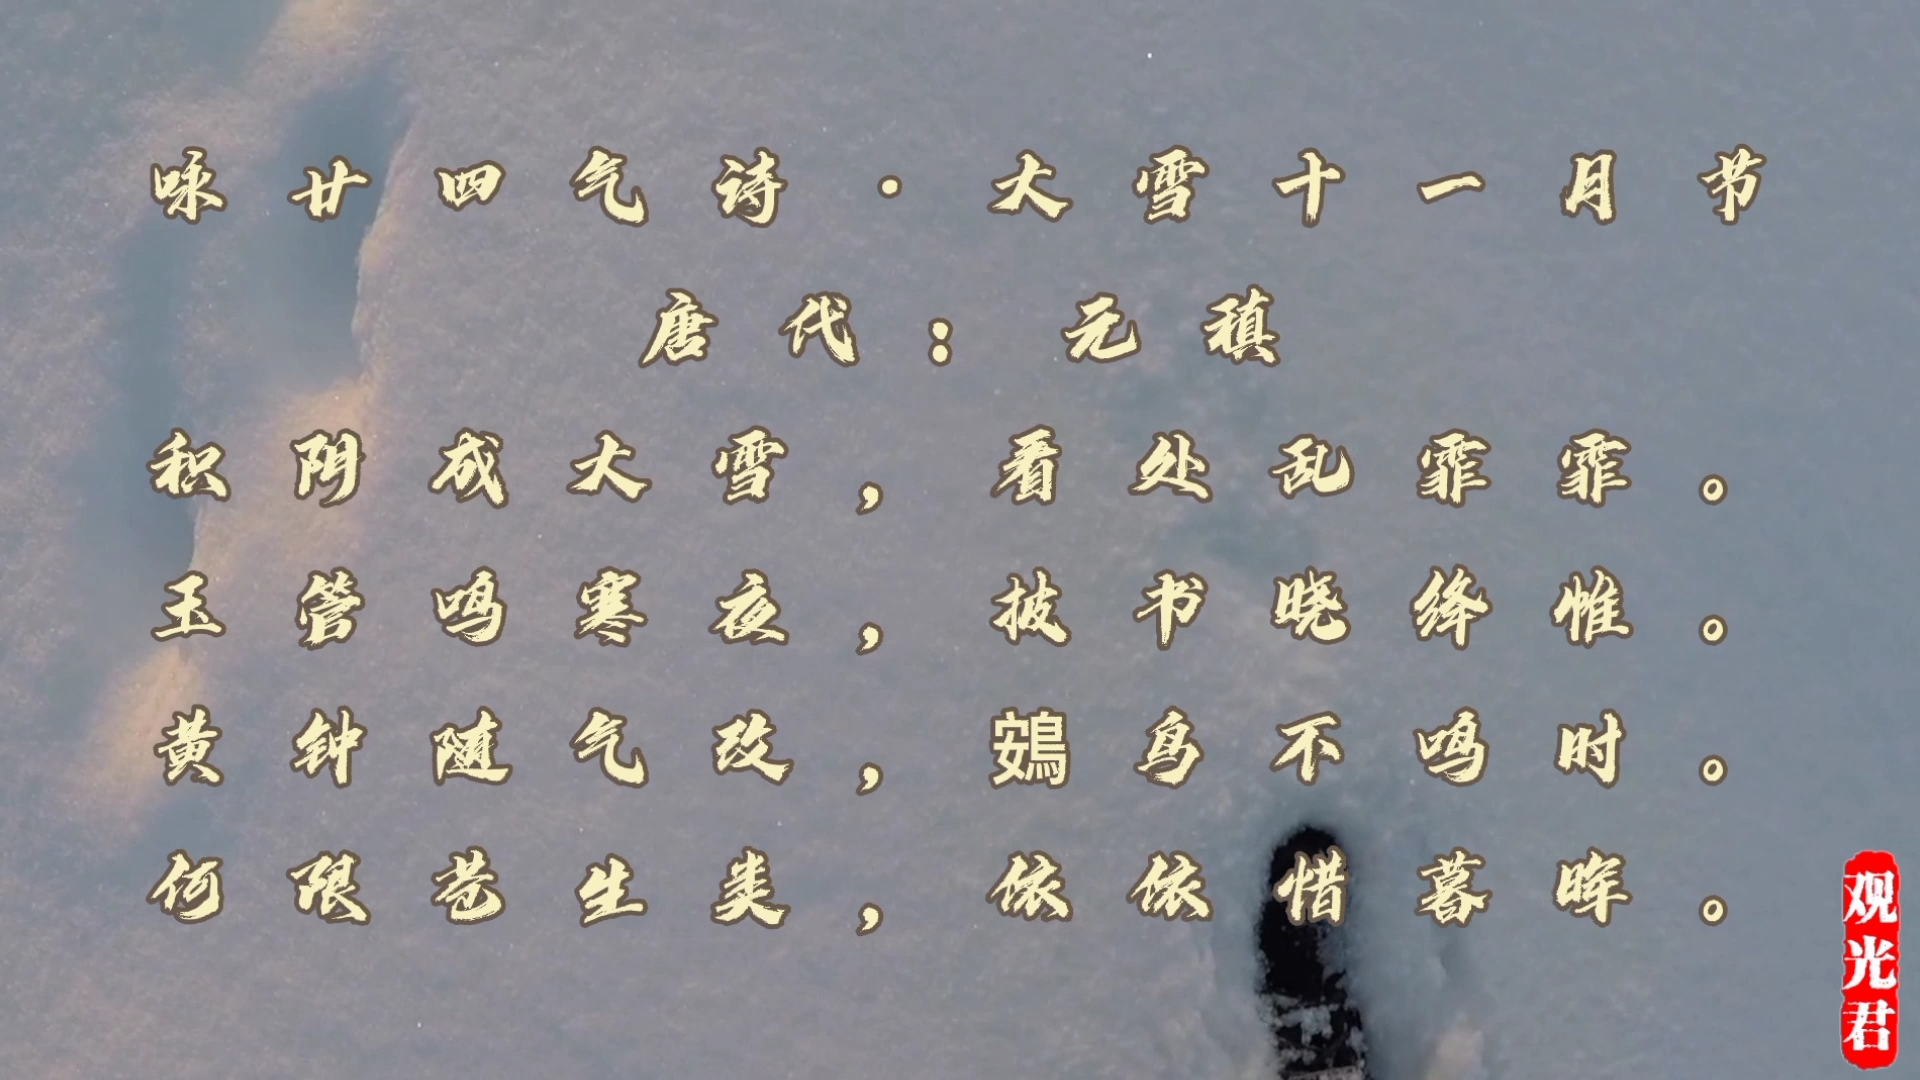 咏廿四气诗·大雪十一月节
唐代：元稹
积阴成大雪，看处乱霏霏。
玉管鸣寒夜，披书晓绛帷。
黄钟随气改，鴳鸟不鸣时。
何限苍生类，依依惜暮晖。
观光君